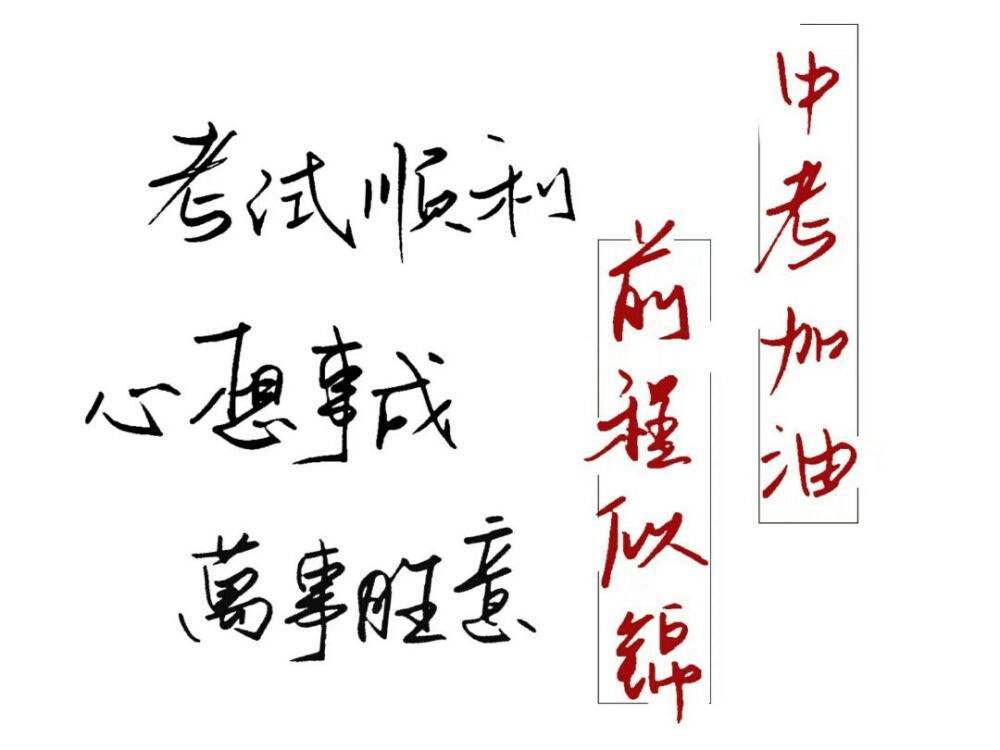 中考加油
前程似锦
考试顺利
心愿事成
萬事胜意